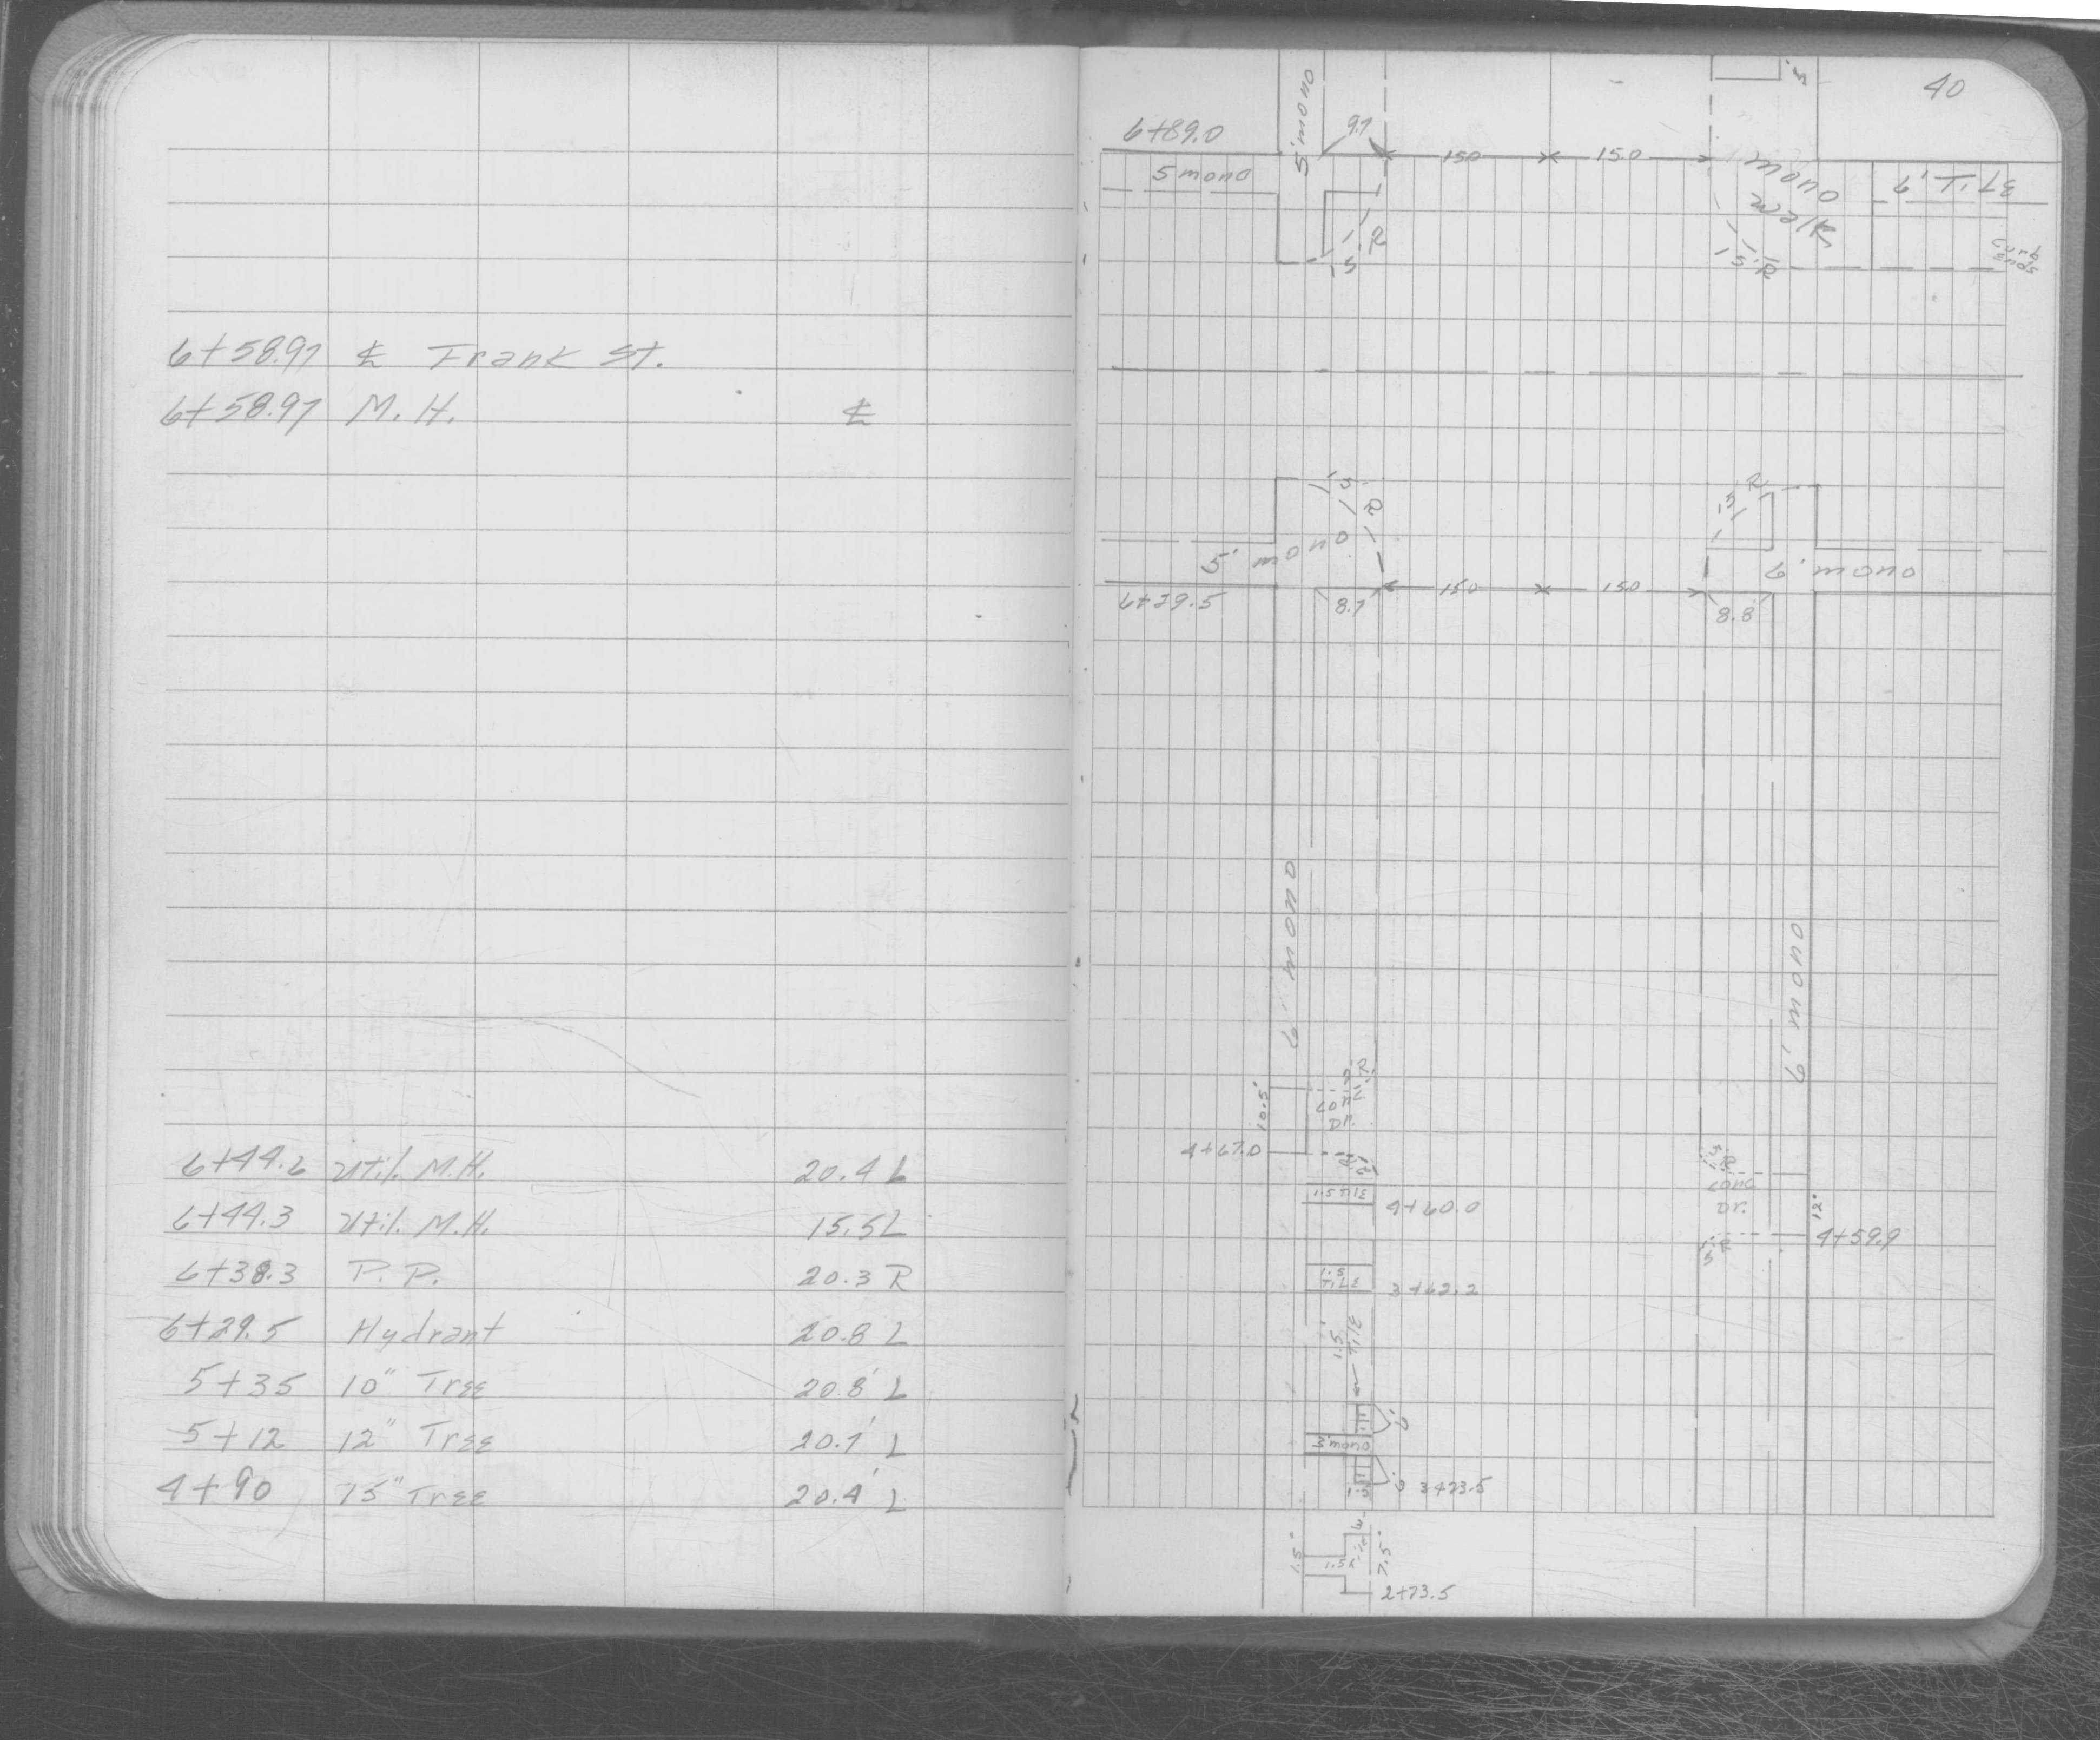 6+58.97 ℄ Frank St.
6+58.97 M.H. ℄
6+44.6 Util. M.H. 20.4 L
6+44.3 Util. M.H. 15.5 L
6+38.3 P.P. 20.3 R
6+29.5 Hydrant 20.8 L
5+35 10" Tree 20.8' L
5+12 12" Tree 20.7' L
4+90 15" Tree 20.4' L
40
5' mono
5'
6+89.0
9.7
15.0
15.0
5 mono
mono
walk
6' TILE
5' R
5' R
Curb
ends
5' R
5' R
5' mono
6' mono
6+29.5
8.7
15.0
15.0
8.8
6' mono
6' mono
10.5'
Conc.
Dr.
4+67.0
1.5 TILE
4+60.0
5 R
Conc
Dr.
12'
5 R
4+59.9
1.5
TILE
3+62.2
1.5'
TILE
3' mono
3+23.5
1.5'
1.5
7.5'
2+73.5